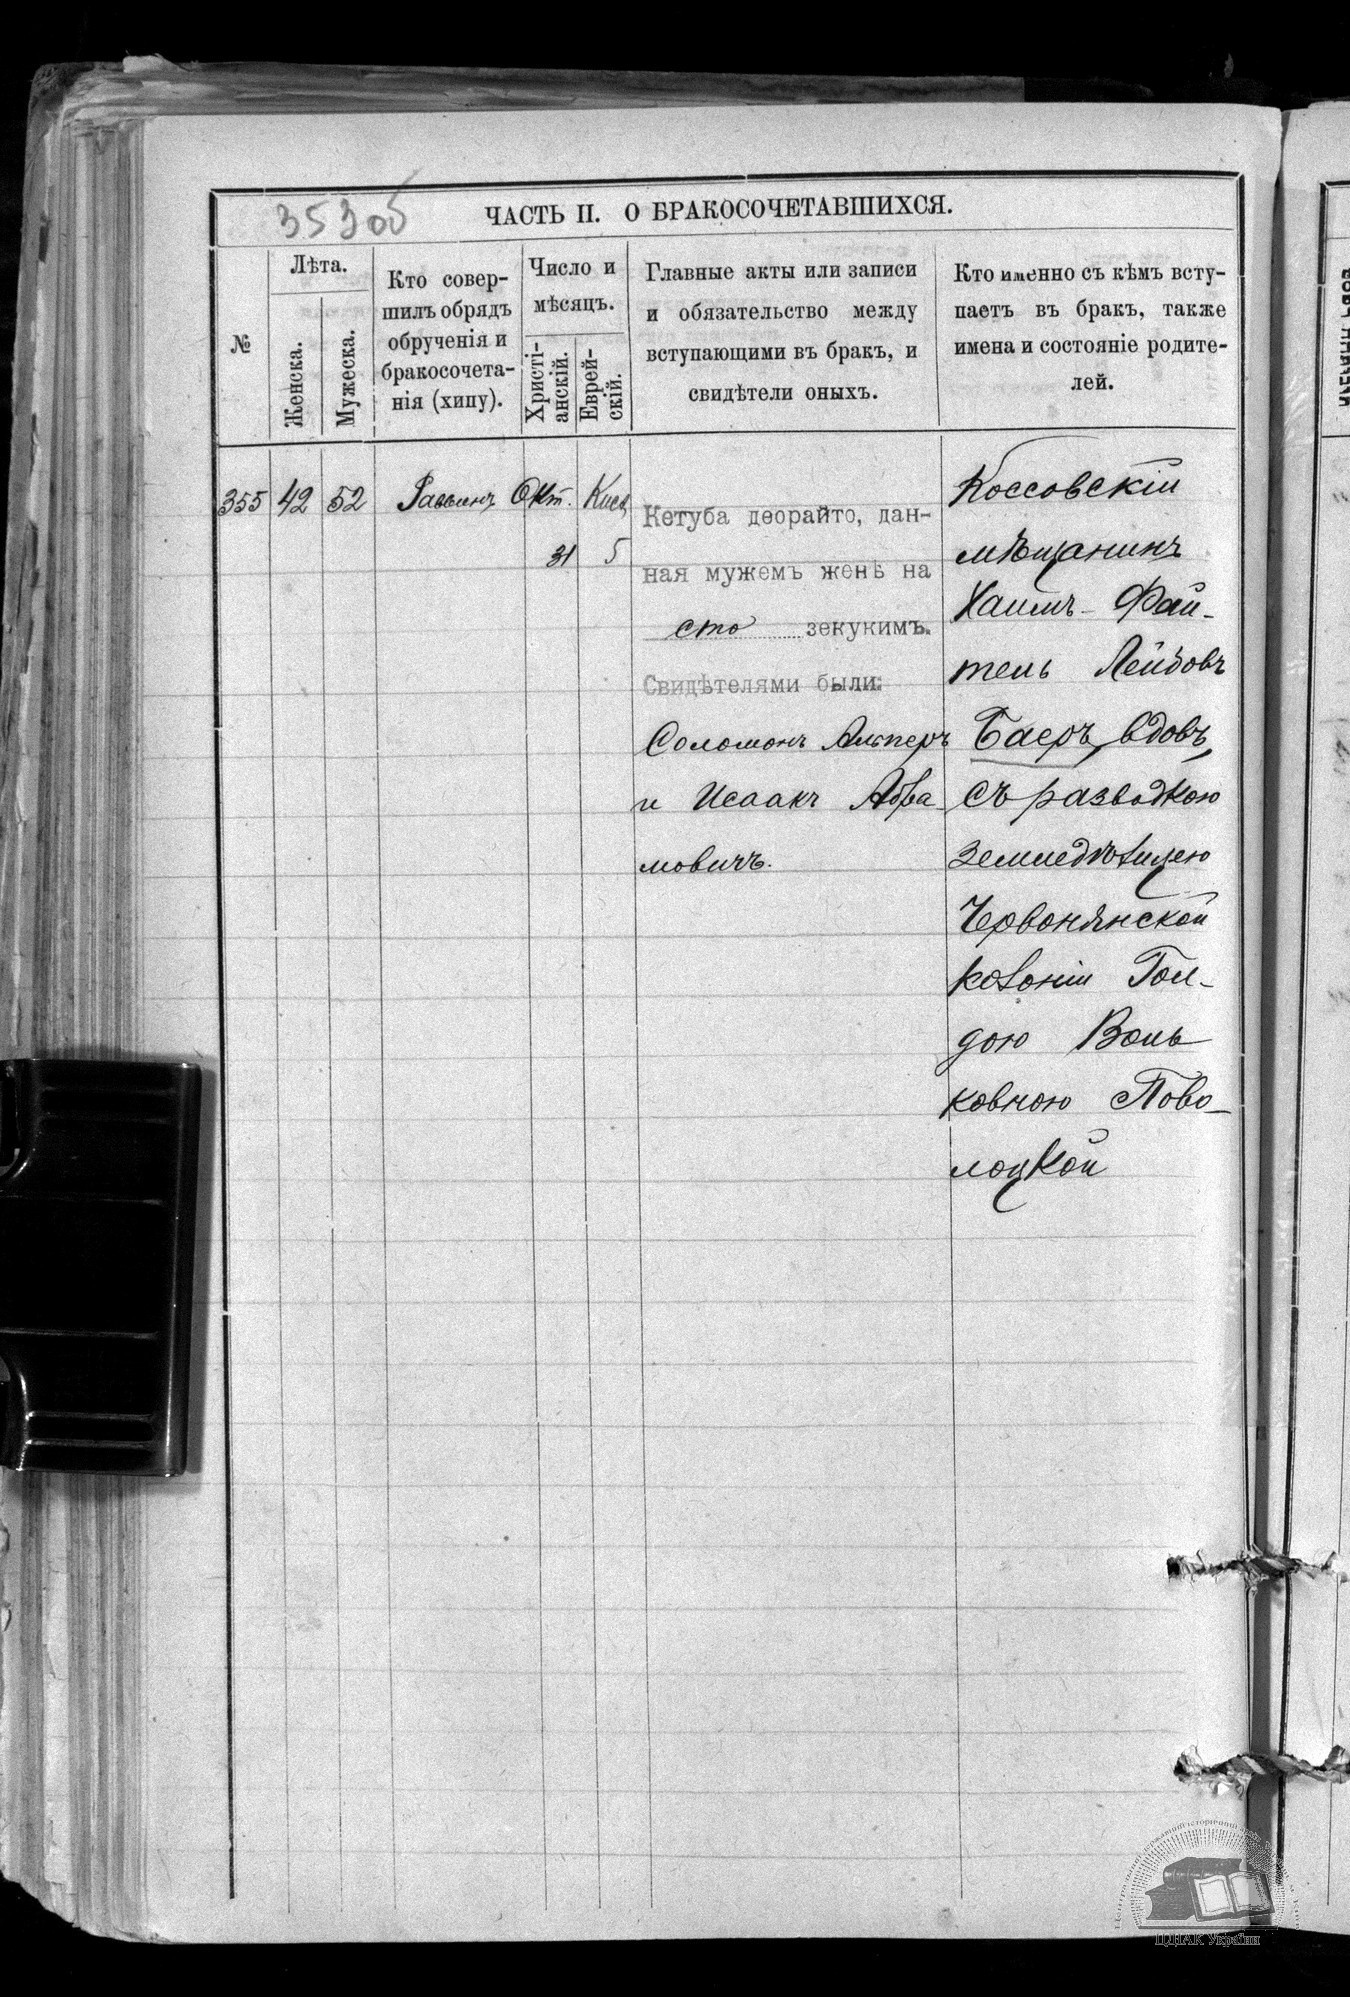 353 об
ЧАСТЬ II. О БРАКОСОЧЕТАВШИХСЯ.
№
Лѣта.
Женска.
Мужеска.
Кто совер-
шилъ обрядъ
обрученія и
бракосочета-
нія (хипу).
Число и
мѣсяцъ.
Христі-
анскій.
Еврей-
скій.
Главные акты или записи
и обязательство между
вступающими въ бракъ, и
свидѣтели оныхъ.
Кто именно съ кѣмъ всту-
паетъ въ бракъ, также
имена и состояніе родите-
лей.
355 42 52 Раввинъ Окт. Кисл.
31 5
Кетуба деорайто, дан-
ная мужемъ женѣ на
сто зекукимъ.
Свидѣтелями были:
Соломонъ Альперъ
и Исаакъ Абра
мовичъ.
Коссовскій
мѣщанинъ
Хаимъ-Фай-
тель Лейбовъ
Баеръ, вдовъ,
съ разводкою
земледѣлицею
Червонянской
колоніи Гол-
дою Воль
ковною Пово-
лоцкой
ЦДІАК України